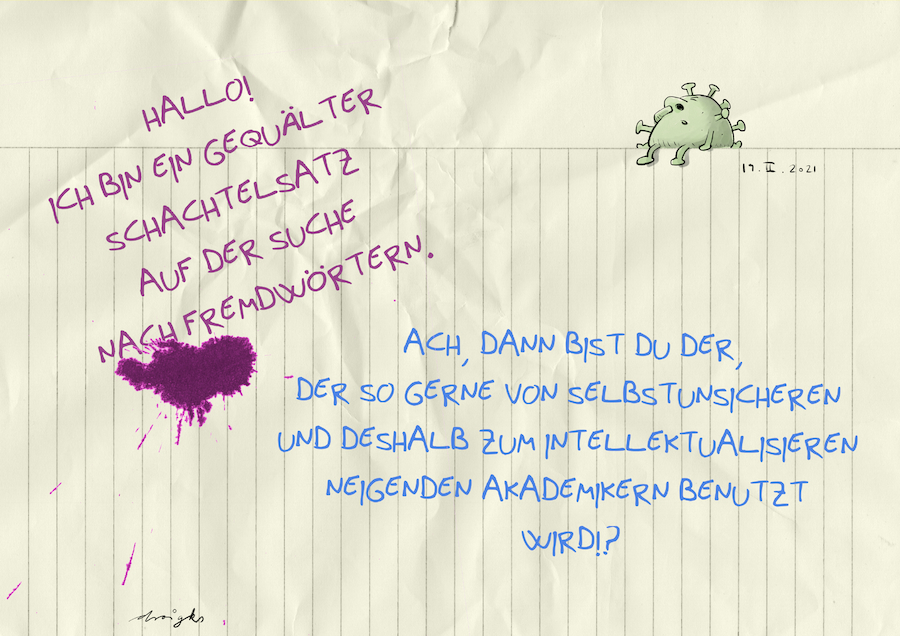 HALLO!
ICH BIN EIN GEQUÄLTER
SCHACHTELSATZ
AUF DER SUCHE
NACH FREMDWÖRTERN.
19.II.2021
ACH, DANN BIST DU DER,
DER SO GERNE VON SELBSTUNSICHEREN
UND DESHALB ZUM INTELLEKTUALISIEREN
NEIGENDEN AKADEMIKERN BENUTZT
WIRD!?